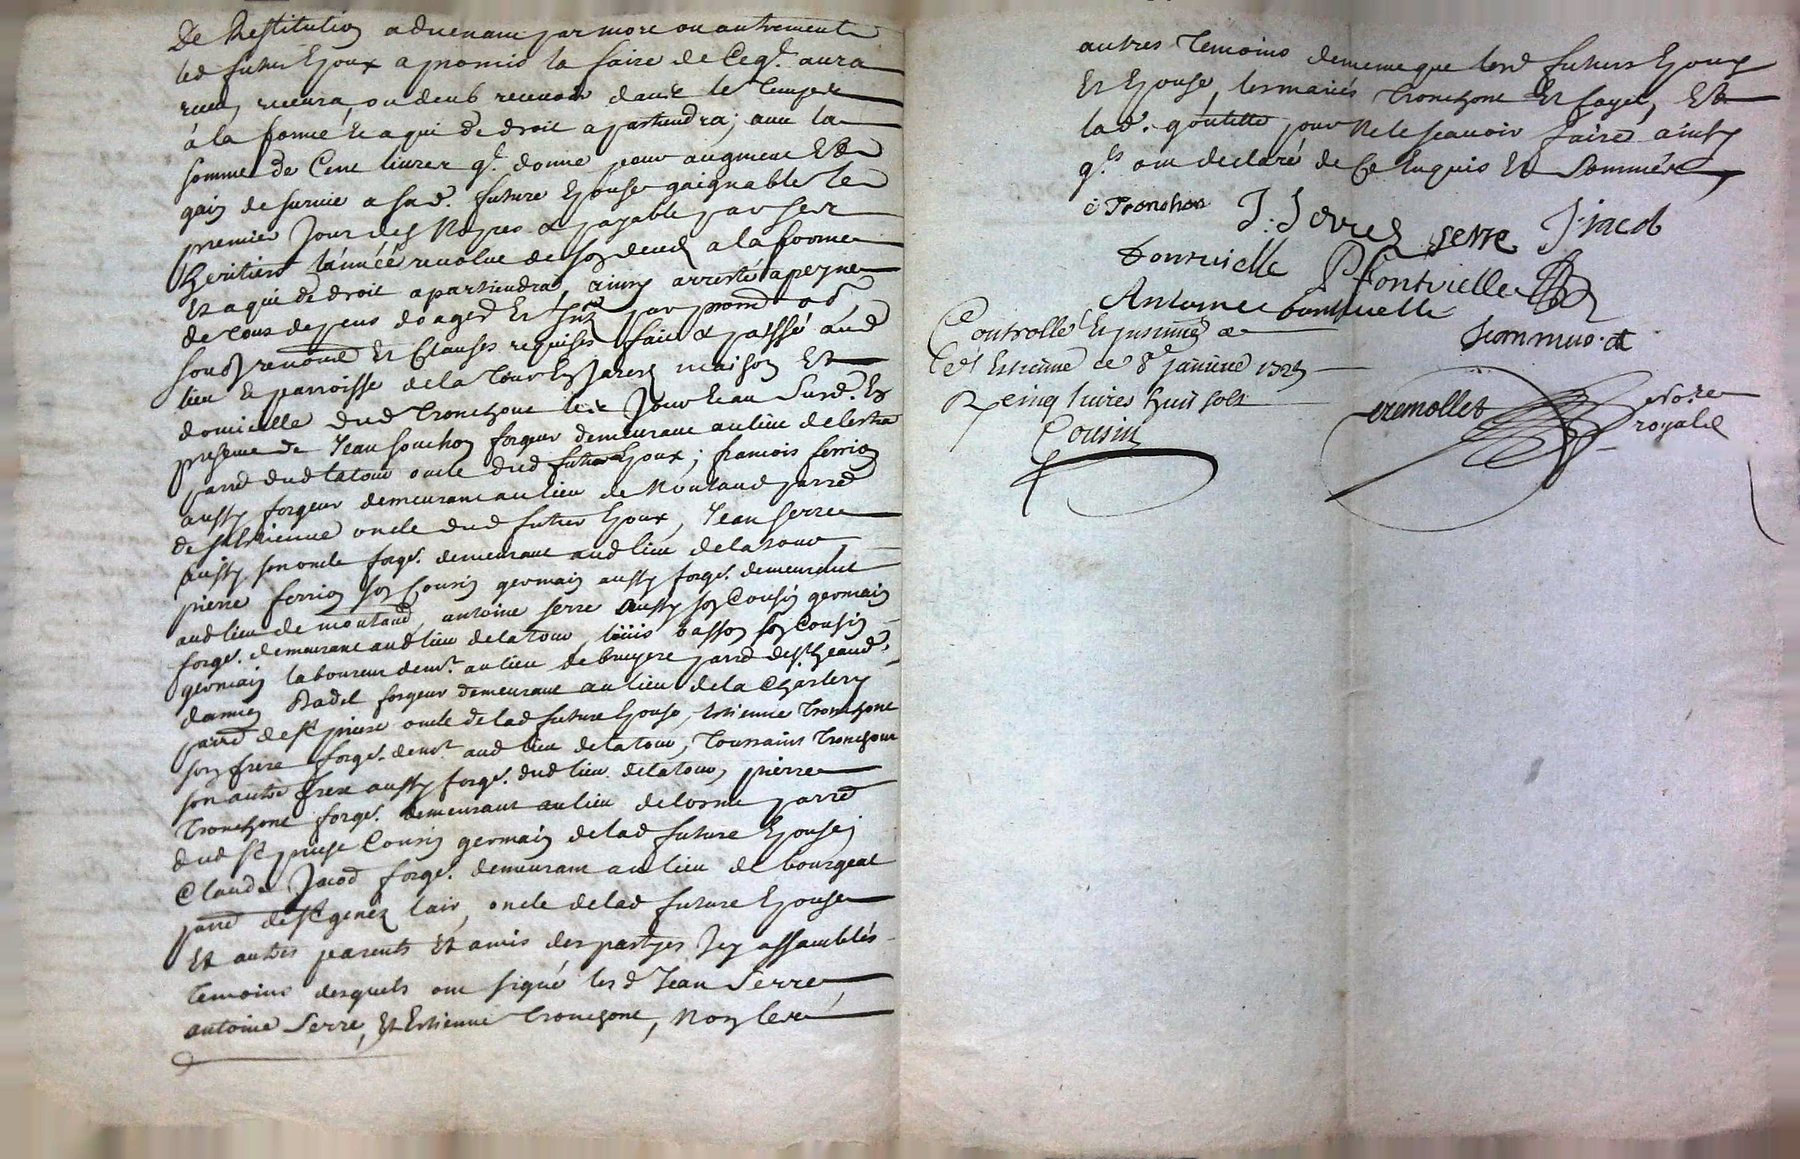 De Restitution advenant par mort ou autrement
led futur Epoux a promis la faire de Ceq.l aura
receu, recevra ou deub recevoir dans le Temps et
à la forme Et a qui de droit apartiendra; avec la
somme de Cent livres q.l donne pour augment Et
gain de survie a sad. future Epouse gaignable le
premier Jour des Nopces & payable par ses
heritiers l'année revolue de son deceds a la forme
Et a qui de droit apartiendra, ainsy arresté a peyne
de tous depens domages Et par promd
soubs renonc Et Clauses requises fait & passé aud
lieu Et parroisse de la Tour En Jarest maison Et
domicille dud Tronchone led Jour Et an Susd. En
presence de Jean souchon forgeur demeurant au lieu de lestra
parrd dud latour oncle dud futur Epoux; francois ferriol
aussy forgeur demeurant au lieu de Montaud parred
de st Estienne oncle dud futur Epoux, Jean Serre
aussy son oncle forge.r demeurant aud lieu de latour,
pierre ferriol son Cousin germain aussy forge.r demeurant
aud lieu de montaud, antoine serre aussy son Cousin germain
forge.r demeurant aud lieu de latour, loüis basson son Cousin
germain laboureur demt. au lieu de bruyere parrd de st heand,
damien Badel forgeur demeurant au lieu de la Chazlery
parrd de st priese oncle de lad future Epouse, Estienne Tronchone
son frere forge.r demt. aud lieu de latour, Toussaint Tronchone
son autre frere aussy forge.r dud lieu de latour, pierre
Tronchone forge.r demeurant au lieu de lorme parrd
dud st priese Cousin germain de lad future Epouse;
Claude Jacod forge.r demeurant au lieu de bourgeat
parrd de st genez lair, oncle de lad future Epouse
Et autres parents Et amis des partyes Icy assamblés
temoins desquels ont signé lesd Jean Serre,
antoine Serre, Et Estienne Tronchone, Non les
autres Temoins de meme que lesd futurs Epoux
Et Epouse, les mariés Tronchone Et fayet, Et
lad. goutette pour Ne le scavoir faire ainsy
q.ls ont declaré de Ce Enquis Et Sommés
e Tronchon J. Serre serre J. jacod
Fontvielle P Fontvielle
Antoine Fontvielle
Controllé & insinué a
St Estienne ce 8e janvier 172
R cinq livres huit sols
Cousin
cremollet notre
royal